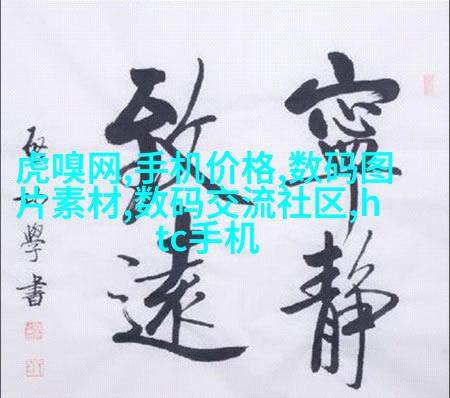 寧静
致遠
虎嗅网,手机价格,数码图
片素材,数码交流社区,h
tc手机